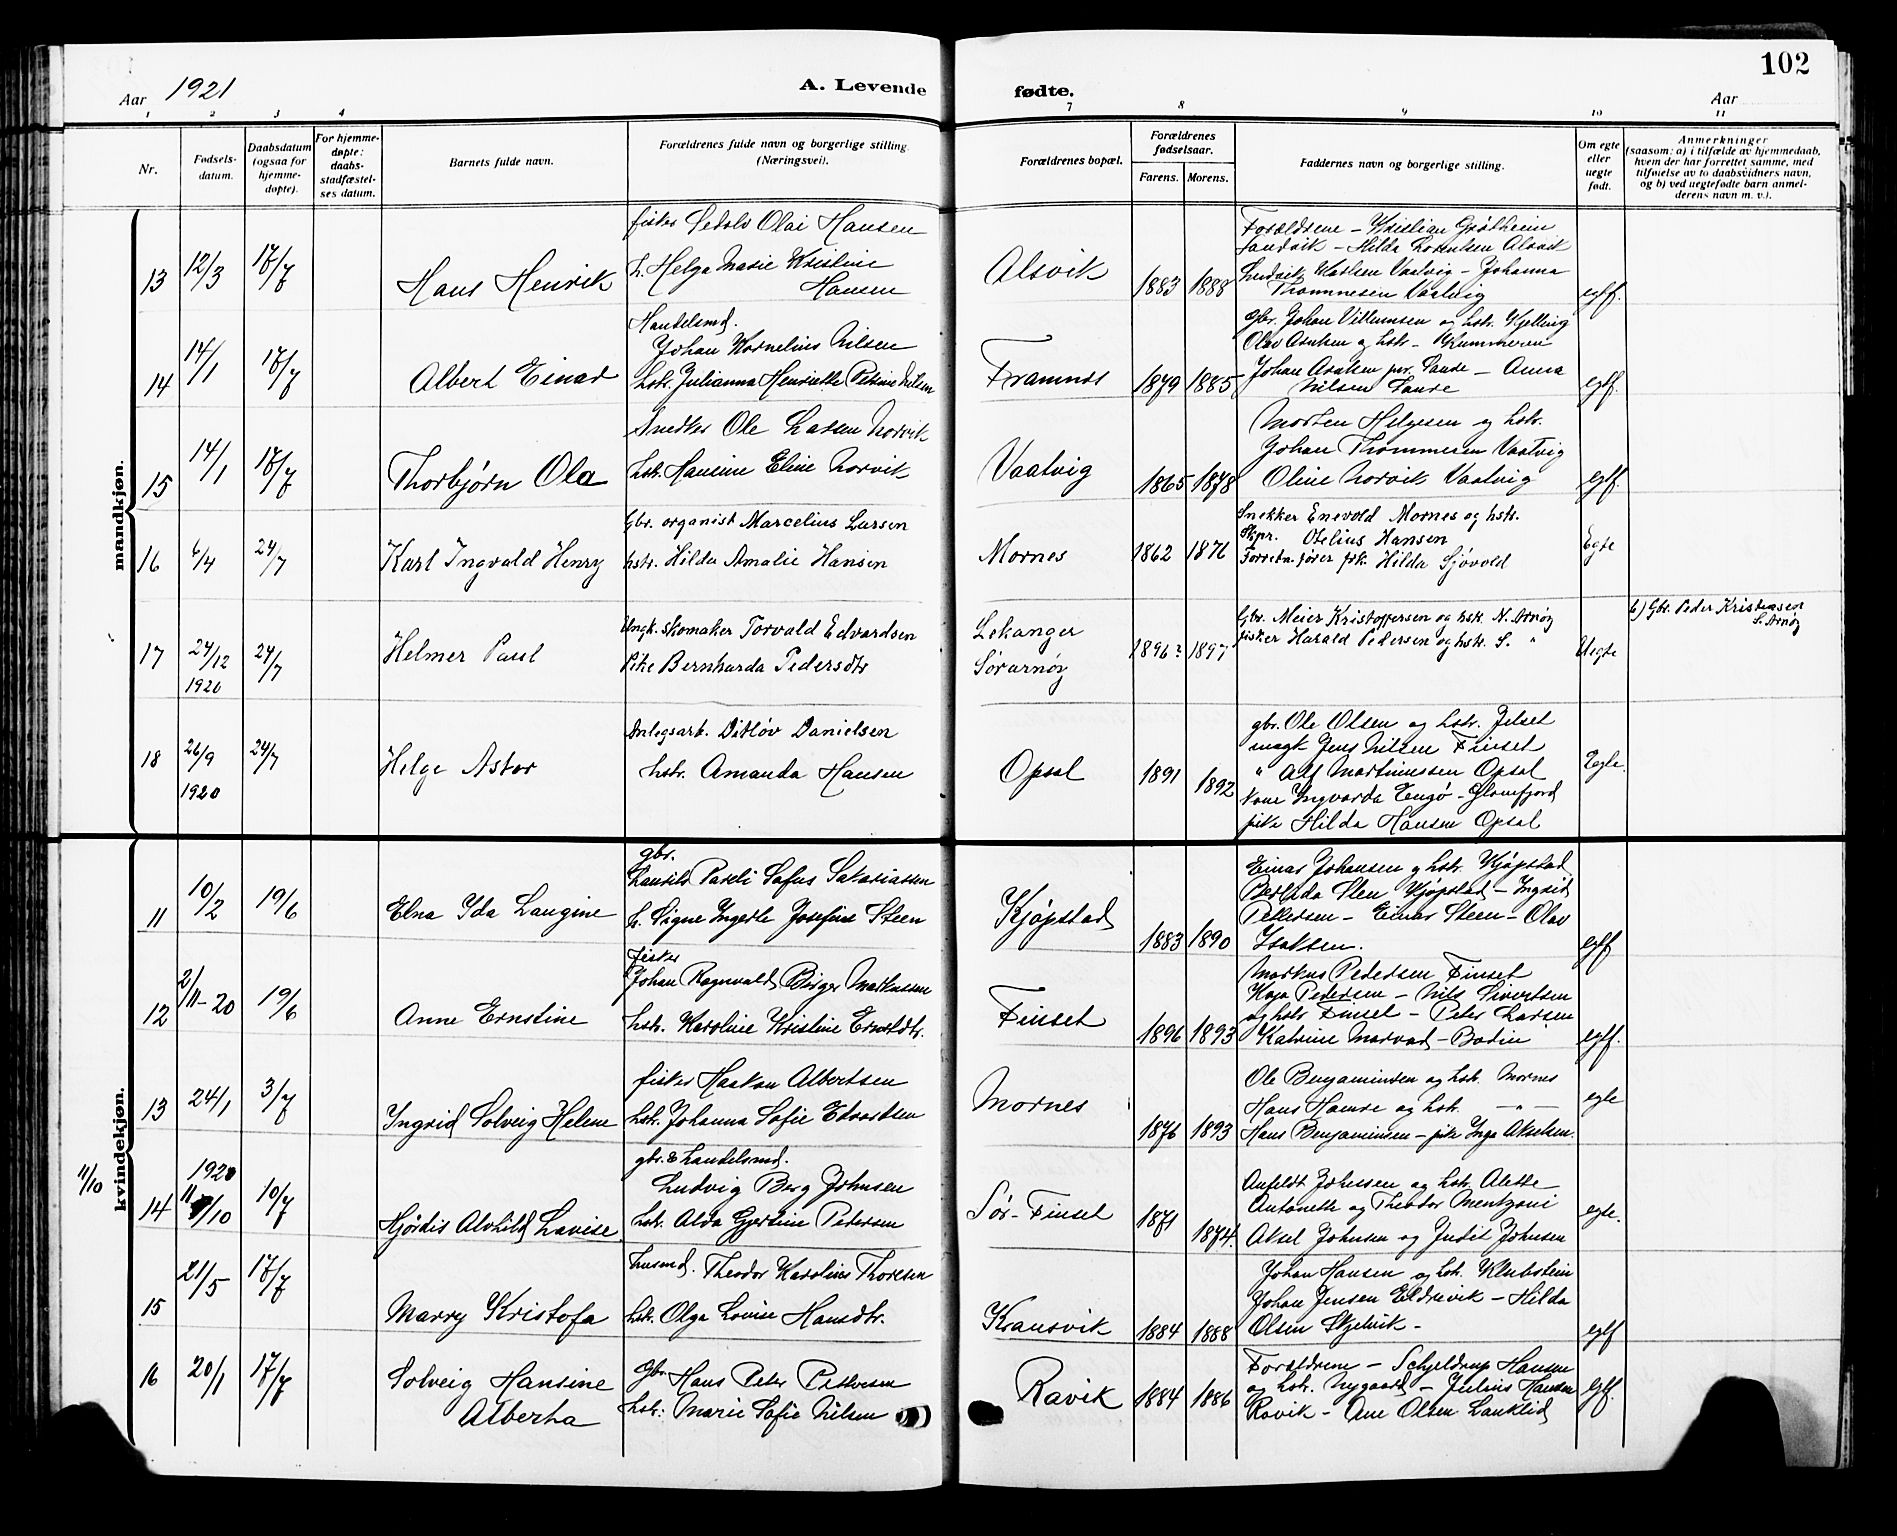 102
Aar 1921
A. Levende
fødte.
Aar
1 2 3 4 7 8 9 10 11
Nr.
Fødsels-
datum.
Daabsdatum
(ogsaa for
hjemme-
døpte).
For hjemme-
døpte:
daabs-
stadfæstel-
ses datum.
Barnets fulde navn.
Forældrenes fulde navn og borgerlige stilling
(Næringsvei).
Forældrenes bopæl.
Forældrenes
fødselsaar.
Farens. Morens.
Faddernes navn og borgerlige stilling.
Om egte
eller
uegte
født.
Anmerkninger
(saasom: a) i tilfælde av hjemmedaab,
hvem der har forrettet samme, med
tilføielse av to daabsvidners navn,
og b) ved uegtefødte barn anmel-
derens navn m. v.).
mandkjøn.
13 12/3 17/7 Hans Henrik
fisker Olai Hansen
h. Helga Marie Kristine
Hansen
Alsvik 1883 1888
Forældrene - Kristian Grøtheim
Sandvik - Hilda Lorentsen Alsvik
Ludvik Karlsen Vaatvig - Johanna
Thommesen Vaatvig
egtf.
14 14/1 17/7 Albert Einar
Handelsmd.
Johan Kornelius Nilsen
hstr. Julianna Henriette Petrine Nilsen
Framnes 1879 1885
gbr. Johan Villumsen og hstr. Kjelling
Olav Asaksen og hstr -
Johan Asaksen Saure - Anna
Nilsen Saure
egtf.
15 14/1 17/7 Thorbjørn Ola
Snedker Ole Larsen Norvik
hstr. Hansine Eline Norvik
Vaatvig 1865 1878
Morten Helgesen og hstr.
Johan Thommesen Vaatvig
Oline Norvik Vaatvig
egtf.
16 6/4 24/7 Karl Ingvald Henry
Gbr. organist Marcelius Larsen
hstr. Hilda Amalie Hansen
Mornes 1862 1876
Snekker Enevold Mornes og hstr.
Skpr. Otelius Hansen
Forretn.fører frk. Hilda Sjövold
Egte
17 24/12 1920 24/7 Helmer Paul
Ungk. skomaker Torvald Edvardsen
Pike Bernharda Pedersdtr
Lekanger
Sørarnøy
1896? 1897
Gbr. Meier Kristoffersen og hstr. N. Arnøy
fisker Harald Pedersen og hstr. S. "
Uegte
b) Gbr. Peder Kristensen
S. Arnøy
18 26/9 1920 24/7 Helge Astor
Anlegsarb. Ditløv Danielsen
hstr. Amanda Hansen
Opsal 1891 1892
gbr. Ole Olsen og hstr. Jelset
ungk Jens Nilsen Finset
" Alf Martinussen Opsal
Kone Ingvarda Engø - Glomfjord
pike Hilda Hansen Opsal
Egte.
kvindekjøn.
11 10/2 19/6 Elna Ida Laugine
gbr.
Pareli Sofus Sakariassen
h. Signe Ingerle Josefine Steen
Kjøpstad 1883 1890
Einar Johansen og hstr. Kjøpstad
Steen Kjøpstad - Ingrid
Pettersen - Einar Steen - Olav
Isaksen.
egtf
12 2/11-20 19/6 Anne Ernstine
fisker
Johan Ragnvald Birger Markussen
hstr. Karoline Kristine Ernstdtr.
Finset 1896 1893
Markus Pedersen Finset
Kaja Pedersen - Nils Sivertsen
og hstr Finset - Peter Larsen
Katrine Morvad - Bodin
egtf.
13 24/1 3/7 Ingrid Solveig Helene
fisker Haakon Albertsen
hstr. Johanna Sofie Edvardsen
Mornes 1876 1893
Ole Benjaminsen og hstr. Mornes
Hans Hamre og hstr. - " -
Hans Benjaminsen - pike Inga Akselsen.
egte
11/10
14 1920 11/10 10/7 Hjørdis Alvhild Lovise
gbr. & handelsmd.
Ludvig Berg Johnsen
hstr. Alda Gjertine Petersen
Sør-Finset 1871 1874.
Anfeldt Johnsen og hstr Alette
Antonette og Theodor Mentzoni
Aksel Johnsen og Judit Johnsen
egte.
15 21/5 17/7 Marry Kristofa
husmd. Theodor Karolius Thoresen
hstr. Olga Lovise Hansdtr.
Kransvik 1884 1888
Johan Hansen og hstr. Klubstein
Johan Jensen Eldrevik - Hilda
Olsen Skjelvik -
egtf
16 20/1 17/7 Solveig Hansine
Albertha
Gbr Hans Peter Pettersen
hstr: Marie Sofie Nilsen
Ravik 1884 1886
Forældrene - Schjeldrup Hansen
og hstr. Nygaard - Julius Hansen
Ravik - Ane Olsen Lanklid
egtf.